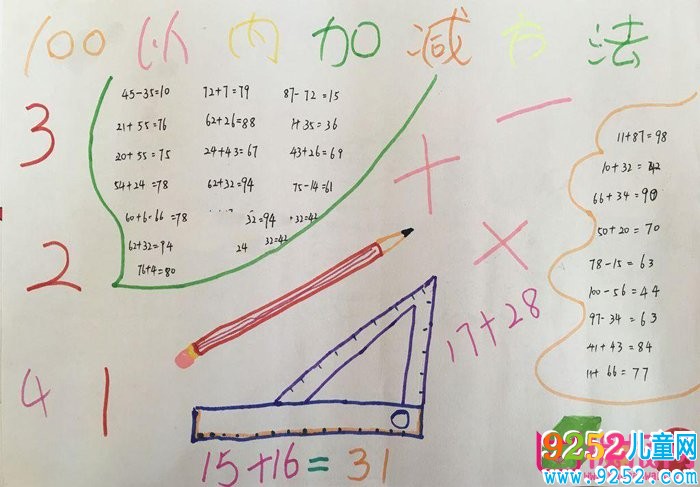 100以内加减方法
3
45-35=10 72+7=79 87-72=15
21+55=76 62+26=88 1+35=36
20+55=75 24+43=67 43+26=69
54+24=78 62+32=94 75-14=61
60+6=66=78 32=94 +32=42
62+32=94 24 32=42
76+4=80
+
-
×
11+87=98
10+32=42
66+34=90
50+20=70
78-15=63
100-56=44
97-34=63
41+43=84
11+66=77
2
17+28
4
1
15+16=31
9252儿童网
www.9252.com